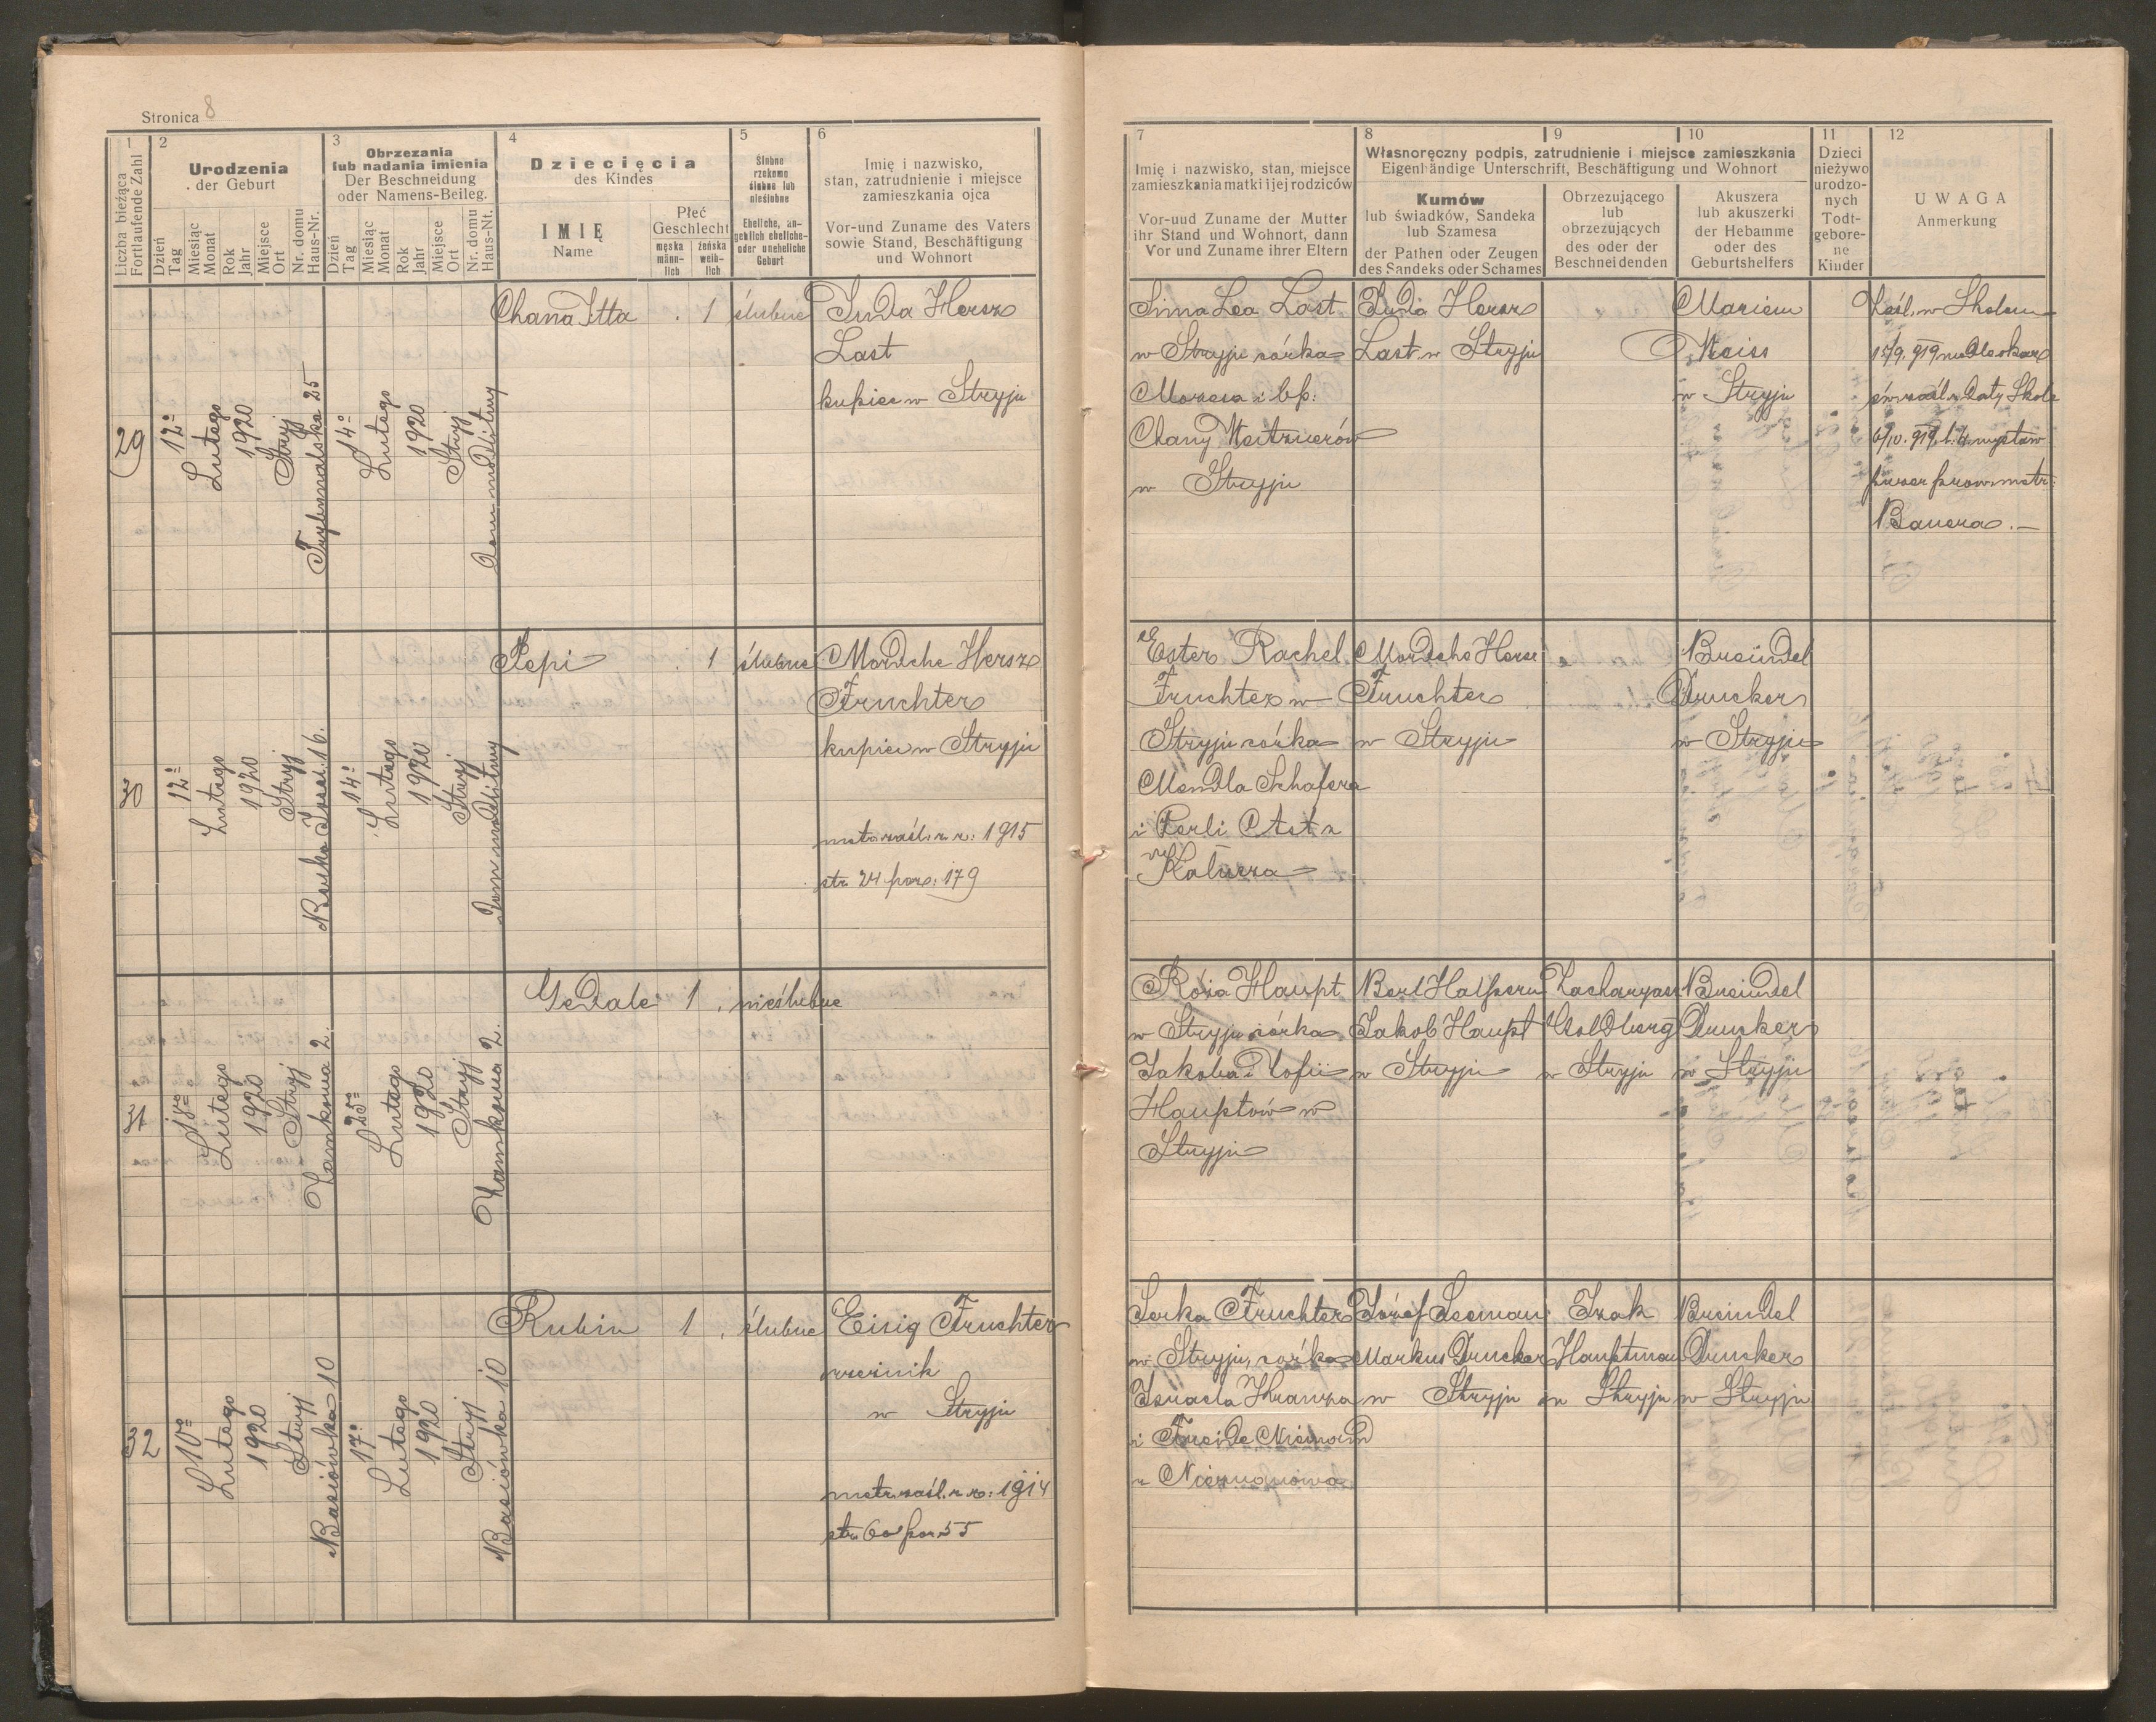 Stronica 8
1
Liczba bieżąca
Fortlaufende Zahl
2
Urodzenia
der Geburt
Dzień
Tag
Miesiąc
Monat
Rok
Jahr
Miejsce
Ort
Nr. domu
Haus-Nr.
3
Obrzezania
lub nadania imienia
Der Beschneidung
oder Namens-Beileg.
Dzień
Tag
Miesiąc
Monat
Rok
Jahr
Miejsce
Ort
Nr. domu
Haus-Nt.
4
Dziecięcia
des Kindes
IMIĘ
Name
Płeć
Geschlecht
męska
männ-
lich
żeńska
weib-
lich
5
Ślubne
rzekomo
ślubne lub
nieślubne
Eheliche, an-
geblich eheliche-
oder uneheliche
Geburt
6
Imię i nazwisko,
stan, zatrudnienie i miejsce
zamieszkania ojca
Vor-und Zuname des Vaters
sowie Stand, Beschäftigung
und Wohnort
7
Imię i nazwisko, stan, miejsce
zamieszkania matki i jej rodziców
Vor-uud Zuname der Mutter
ihr Stand und Wohnort, dann
Vor und Zuname ihrer Eltern
8
9
10
Własnoręczny podpis, zatrudnienie i miejsce zamieszkania
Eigenhändige Unterschrift, Beschäftigung und Wohnort
Kumów
lub świadków, Sandeka
lub Szamesa
der Pathen oder Zeugen
des Sandeks oder Schames
Obrzezującego
lub
obrzezujących
des oder der
Beschneidenden
Akuszera
lub akuszerki
der Hebamme
oder des
Geburtshelfers
11
Dzieci
nieżywo
urodzo-
nych
Todt-
gebore-
ne
Kinder
12
UWAGA
Anmerkung
29
12º
Lutego
1920
Stryj
Trybunalska 25
14º
Lutego
1920
Stryj
Dom modlitwy
Chana Itta
. 1
ślubne
Juda Hersz
Last
kupiec w Stryju
Sima Lea Last
w Stryju córka
Mozesa i bp:
Chany Weitznerów
w Stryju
Juda Hersz
Last w Stryju
Mariem
Weiss
w Stryju
Zaśl. w Skolem
Bauera .—
30
12º
Lutego
1920
Stryj
14º
Lutego
1920
Stryj
Dom modlitwy
Pepi
. 1
ślubne
Mordche Hersz
Fruchter
kupiec w Stryju
metr. zaśl. z r: 1915
str 24 poz: 179
Ester Rachel
Fruchter w
Stryju córka
Mendla Schafera
i Perli Ast z
Mordche Hersz
Fruchter
w Stryju
Breindel
Drucker
w Stryju
31
18º
Lutego
1920
Stryj
Zamkowa 2
25º
Lutego
1920
Stryj
Zamkowa 2
Gedale
1 .
nieślubne
Róża Haupt
w Stryju córka
Jakoba i Zofii
Hauptów w
Stryju
Berl Halpern
Jakob Haupt
w Stryju
Zacharyasz
Goldberg
w Stryju
Breindel
Drucker
w Stryju
32
10º
Lutego
1920
Stryj
Basiówka 10
17º
Lutego
1920
Stryj
Basiówka 10
Rubin
1 .
ślubne
Eisig Fruchter
rzeźnik
w Stryju
metr. zaśl. z r: 1914
str 60 poz 55
Serka Fruchter
w Stryju, córka
Izraela Kranza
i Freide Niemand
z Niezuchowa
Józef Seeman
Markus Drucker
w Stryju
Izak
Hauptman
w Stryju
Breindel
Drucker
w Stryju